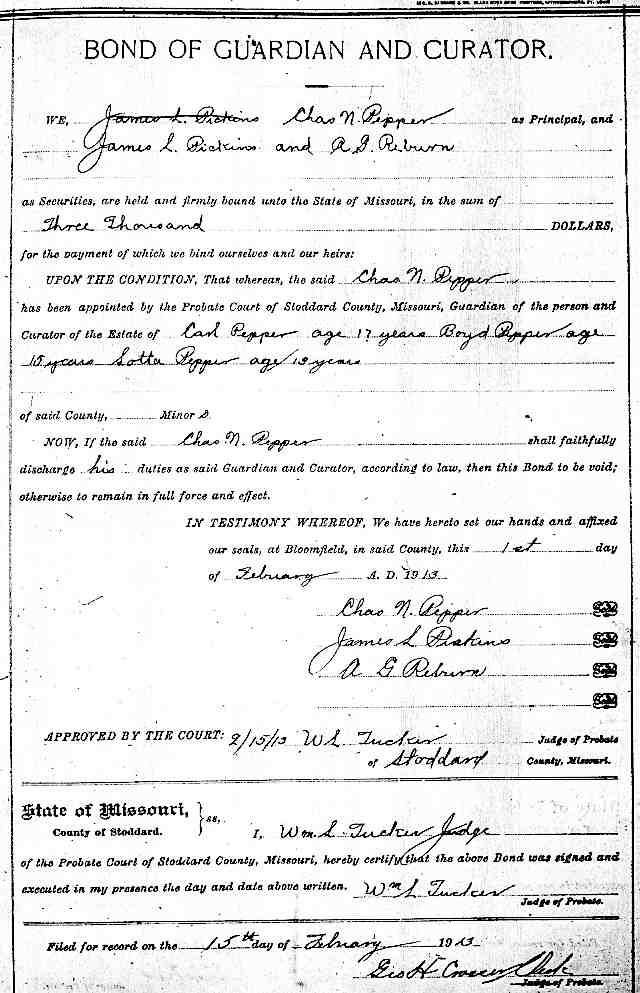 BOND OF GUARDIAN AND CURATOR.
WE, James L. Pickins Chas N. Pepper as Principal, and
James L. Pickins and A G. Reburn
as Securities, are held and firmly bound unto the State of Missouri, in the sum of
Three Thousand DOLLARS,
for the payment of which we bind ourselves and our heirs:
UPON THE CONDITION, That whereas, the said Chas N. Pepper
has been appointed by the Probate Court of Stoddard County, Missouri, Guardian of the person and
Curator of the Estate of Carl Pepper age 17 years Boyd Pepper age
15 years Lotta Pepper age 13 years
of said County, Minor s.
NOW, If the said Chas. N. Pepper shall faithfully
discharge his duties as said Guardian and Curator, according to law, then this Bond to be void;
otherwise to remain in full force and effect.
IN TESTIMONY WHEREOF, We have hereto set our hands and affixed
our seals, at Bloomfield, in said County, this 1st day
of February A. D. 1913
Chas N. Pepper
James L Pickins
A G Reburn
APPROVED BY THE COURT: 2/15/13 W L Tucker Judge of Probate
of Stoddard County, Missouri.
State of Missouri, } ss,
County of Stoddard. I, Wm L. Tucker Judge
of the Probate Court of Stoddard County, Missouri, hereby certify that the above Bond was signed and
executed in my presence the day and date above written. Wm L Tucker
Judge of Probate.
Filed for record on the 15th day of February 1913
Geo H Clerk
Judge of Probate.